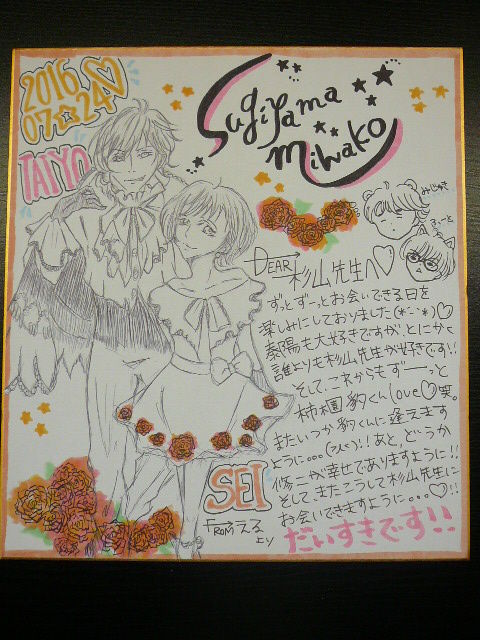 2016
07☆24
TAIYO
Sugiyama
miwako
DEAR→杉山先生へ♡
ずっとずーっとお会いできる日を
楽しみにしておりました
泰陽も大好きですが、とにかく
誰よりも杉山先生が好きです!!
そして、これからもずーーっと
柿園 豹くんlove♡笑。
またいつか豹くんに逢えます
ように。。。!!あと、どうか
が幸せでありますように!!
そして、またこうして杉山先生に
お会いできますように。。。♡!!
だいすきです!!
SEI
FROM→える
より